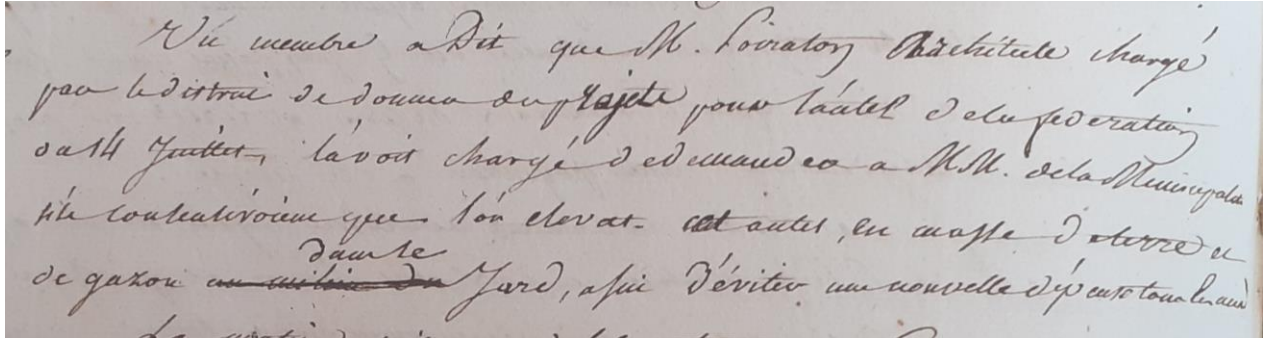 Un membre a Dit que M. Poiraton Architecte chargé
par le district de donner des projets pour l'autel de la federation
du 14 Juillet, l'avoit chargé de demander a MM. de la Municipalité
s'ils consentiroient que l'on elevat cet autel, en masse de terre et
de gazon au milieu du dans le Jard, afin d'éviter une nouvelle dépense tous les ans